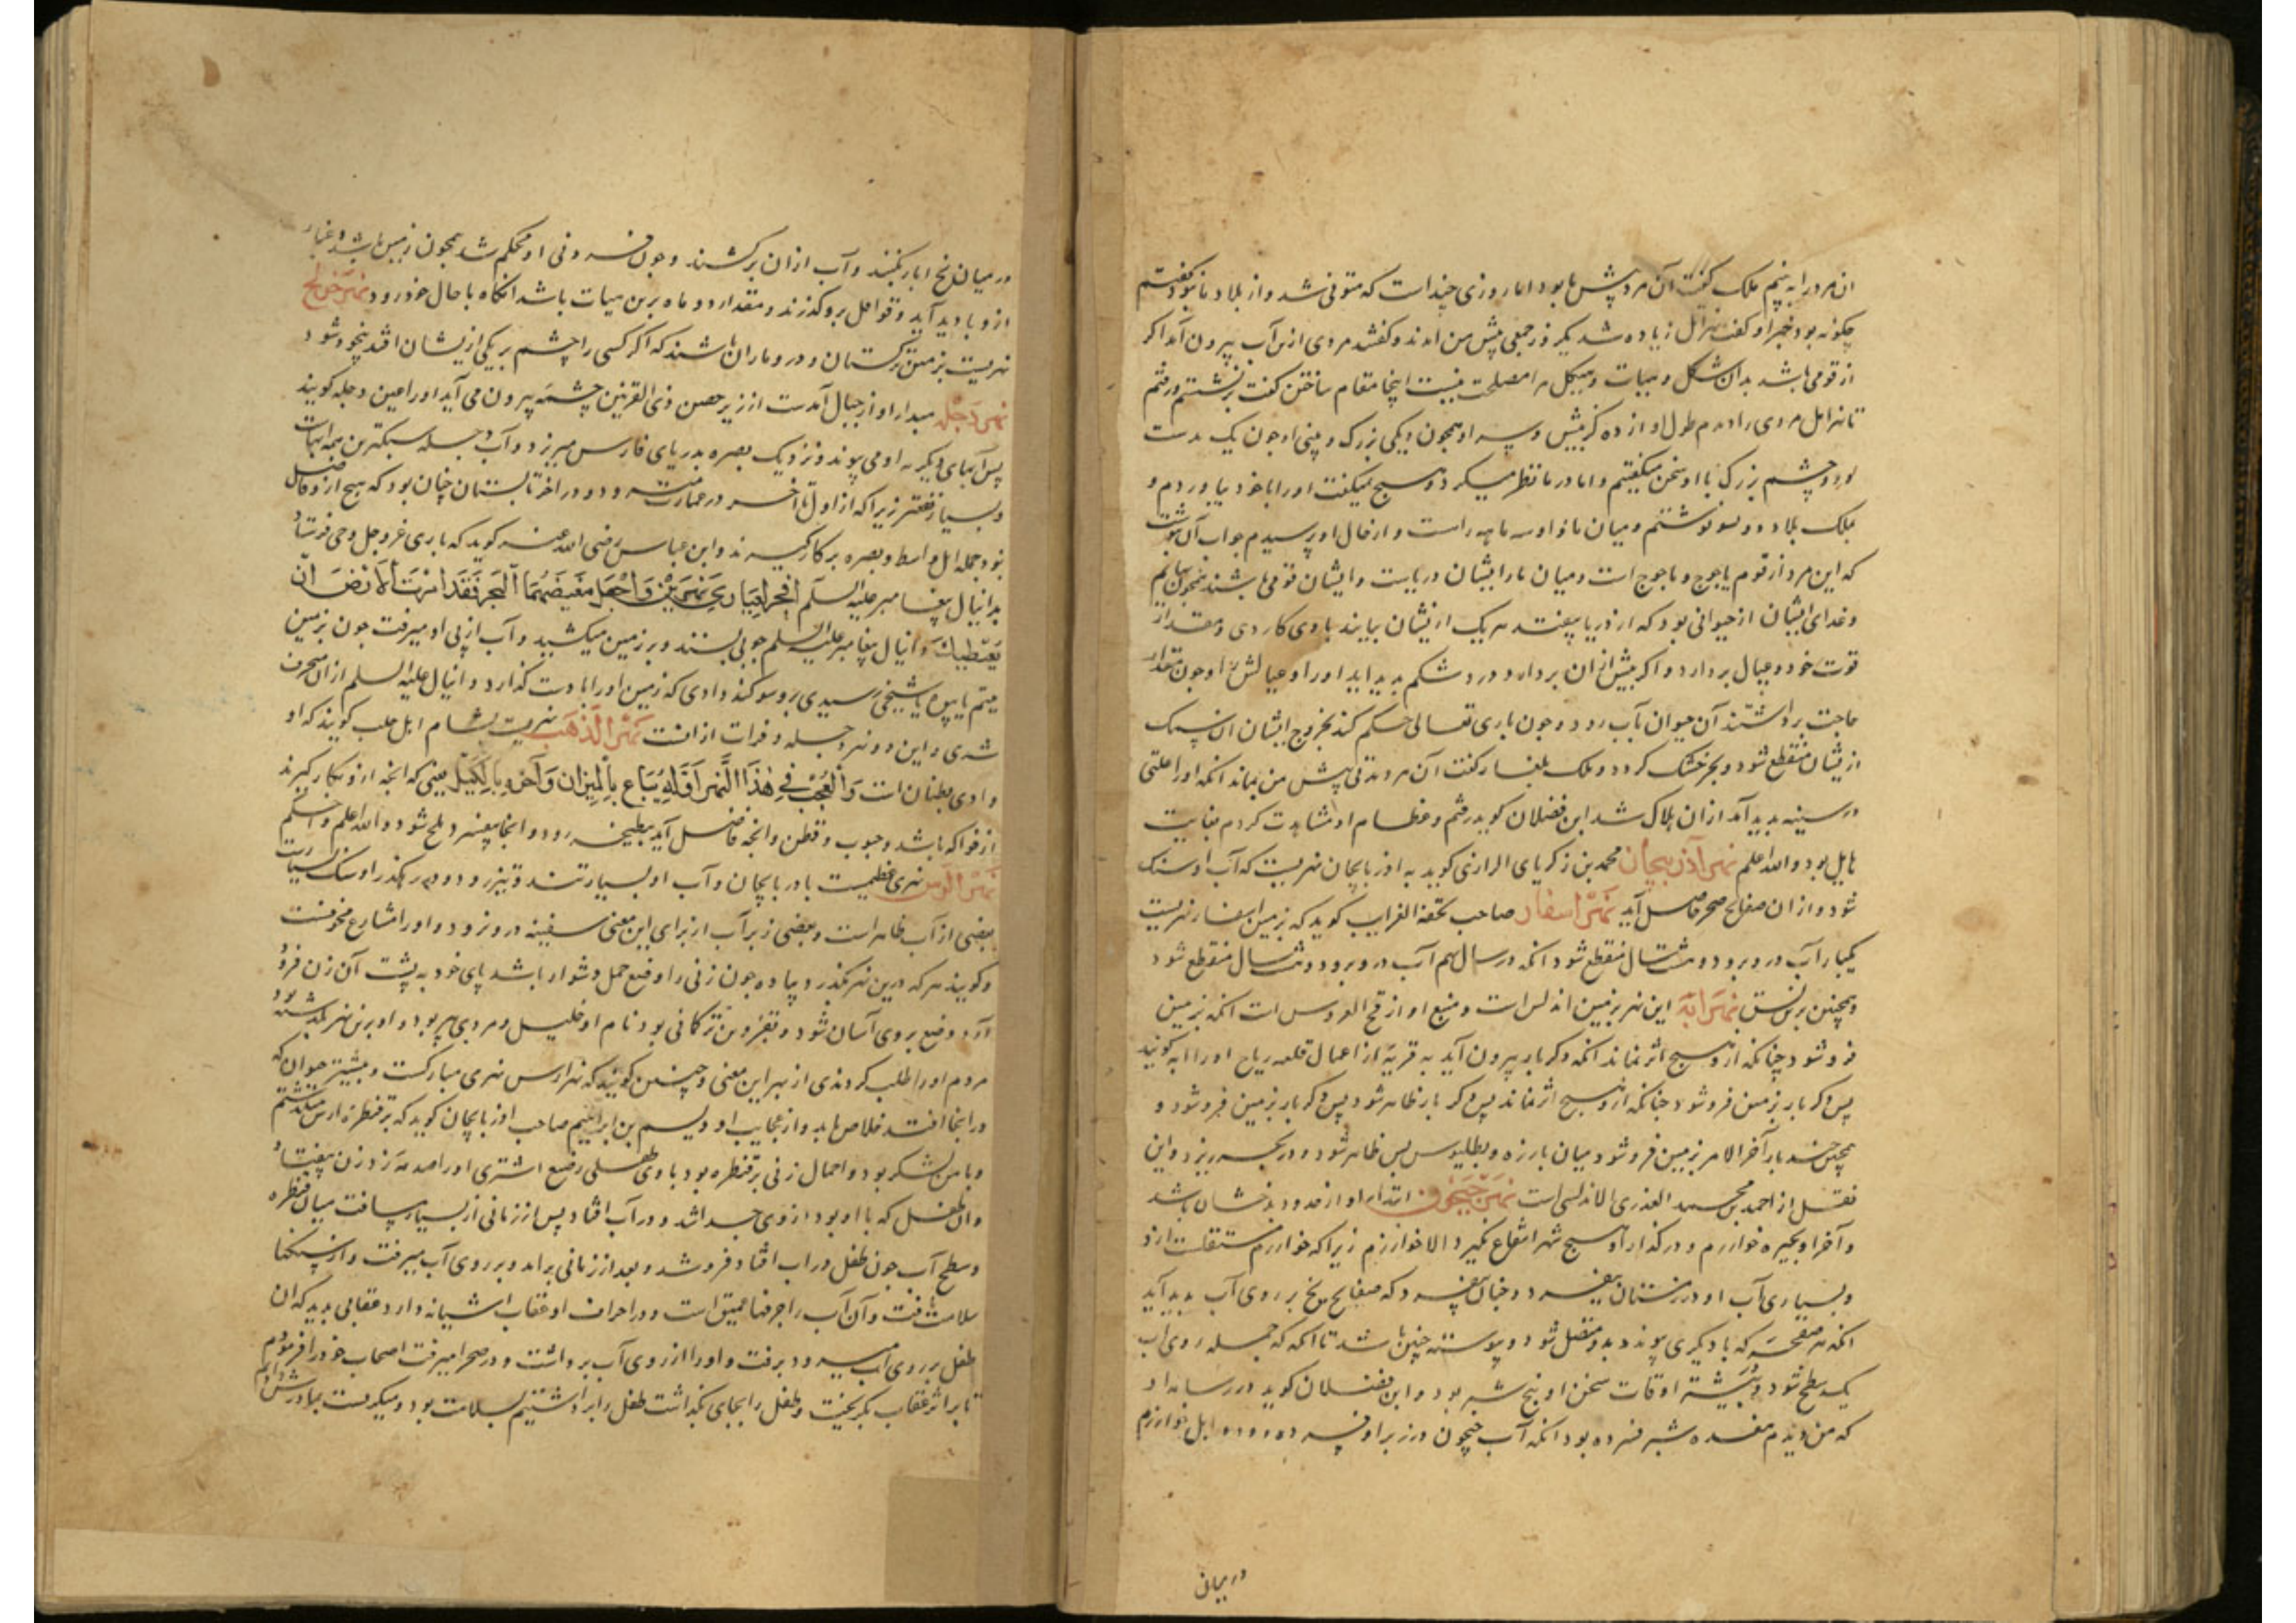 ان مرد را به بینم ملک گفت آن مرد پیش ما بود اما روزی چند است که متوفی شد و از بلاد ما نبود گفتم
چگونه بود خبر او گفت زیاده شد یکروز جمعی پیش من امدند و گفتند مردی از آب بیرون آمد اگر
از قومی باشد بدان شکل و هیات و هیکل ما را مصلحت نیست اینجا مقام ساختن گفت برنشستم و رفتم
تا نهر اتل مردی را دیدم طول او از ده گز بیش و سر او همچون دیگی بزرگ و بینی او چون یک بدست
بود و چشم بزرگ با او سخن میگفتیم و اما در ما نظر میکرد و هیچ نمیگفت او را با خود بیاوردم و
بملک بلاد ویسو نوشتم و میان ما و او سه ماهه راه است و از حال او پرسیدم جواب آن نوشت
که این مرد از قوم یاجوج و ماجوج است و میان ما و ایشان دریاست و ایشان قومی باشند همچون بهایم
و غدای ایشان از حیوانی بود که از دریا بیفتد هر یک از ایشان بیایند با وی کاردی و مقدار
قوت خود و عیال بردارد و اگر بیش از ان بردارد درد شکم پدید اید او را و عیالش را و چون مقدار
حاجت برداشتند آن حیوان بآب رود و چون باری تعالی حکم کند بخروج ایشان ان سمک
از یشان منقطع شود و بحر خشک گردد و ملک بلغار گفت آن مرد مدتی پیش من بماند انکه او را علتی
در سینه پدید آمد از ان هلاک شد ابن فضلان گوید رفتم و عظام او مشاهدت کردم بغایت
هایل بود و الله اعلم نهر آذربیجان محمد بن زکریای الرازی گوید به اذربایجان نهریست که آب او سنک
شود و از ان صفایح صخر حاصل آید نهر اسفار صاحب تحفة الغرایب گوید که بزمین اسفار نهریست
یکبار آب در و برود و هشت سال منقطع شود انکه در سال نهم آب در و برود و هشت سال منقطع شود
و همچنین برین نسق نهر ابه این نهر بزمین اندلس است و منبع او از فج العروس است انکه بزمین
فرو شود چنانکه از و هیچ اثر نماند انکه دکر بار بیرون آید به قریه از اعمال قلعه ریاح او را ابه گویند
پس دکر بار بزمین فرو شود چنانکه از و هیچ اثر نماند پس دکر بار ظاهر شود پس دکر بار بزمین فرو شود و
همچنین چند بار آخر الامر بزمین فرو شود میان بارزه و بطلیوس پس ظاهر شود و در بحر ریزد و این
نقل از احمد بن محمد العذری الاندلسی است نهر جیحون ابتداء او از حدود بدخشان باشد
و آخر او بحیره خوارزم و در گذار او هیچ شهر انتفاع نگیرد الا خوارزم زیرا که خوارزم مستقلست از و
و بسیاری آب او در زمستان بیفسرد و چنان بیفسرد که صفایح یخ بر روی آب پدید آید
انکه هر صفحه که با دیگری پیوندد بدو متصل شود و پیوسته چنین باشد تا انکه که جمله روی اب
یک سطح شود و بیشتر اوقات سخن او پنج شبر بود و ابن فضلان گوید در رساله او
که من دیدم هفده شبر فسرده بود انکه آب جیحون در زیر او فسرده اهل خوارزم
در میان
در میان یخ ابار بکنند و آب از ان برکشند و چون فسردنی او محکم شد همچون زمین باشد و غبار
از و با دید آید و قوافل برو گذرند و مقدار دو ماه برین هیات باشد انکاه با حال خود رود نهر خرلخ
نهریست بزمین ترکستان و در و ماران باشند که اگر کسی را چشم بر یکی از یشان افتد بیخود شود
نهر دجله مبداء او از جبال آمدست از زیر حصن ذی القرنین چشمه بیرون می آید او را عین دجله گویند
پس آبهای دیگر به او می پیوند و نزدیک بصره بدریای فارس میریزد و آب دجله سبکترین همه ابهاست
و بسیار نفعتر زیرا که از اول تا آخر در عمارت میرود و در اخر تابستان چنان بود که هیچ از و فاضل
نبود جمله اهل واسط و بصره بر کار گیرند و ابن عباس رضی الله عنه گوید که باری عز و جل وحی فرستاد
بدانیال پیغامبر علیه السلم افجر لعبادی نهرین و اجعل مغیضهما البحر فقد امرت الارض ان
تعطیک دانیال پیغامبر علیه السلم چوبی بستند و بر زمین میکشید و آب از پی او میرفت چون بزمین
یتیم یا پیره یا شیخی رسیدی بر و سوکند دادی که زمین او را با دست گذارد و دانیال علیه السلم از ان منحرف
شدی و این دو نهر دجله و فرات از انست نهر الذهب نهریست بشام اهل حلب گویند که او
وادی بطنان است و العجب فی هذا النهر اوله یباع بالمیزان و آخره بالکیل یعنی که انچه از و بکار گیرند
از فواکه باشد و حبوب و قطن و انچه فاضل آید ببطیحه رود و انجا بیفسرد و ملح شود و الله اعلم و احکم
نهر الرس نهری عظیمست بادربایجان و آب او بسیار تند و تیز رود و در رهگذر او سنک بسیارست
بعضی از آب ظاهر است و بعضی زیر آب از برای این معنی سفینه در و نرود و او را مشارع مخوفست
و گویند هر که درین نهر بگذرد پیاده چون زنی را وضع حمل دشوار باشد پای خود به پشت آن زن فرو
آرد وضع بر وی آسان شود و بقزوین ترکانی بود نام او خلیل و مردی پیر بود و او برین نهر گذشته بود
مردم او را طلب کردندی از بهر این معنی و چنین گویند که نهر ارس نهری مبارکست و بیشتر حیوان که
در انجا افتد خلاص یابد و از عجایب او دیسم بن ابراهیم صاحب اذربایجان گوید که بر قنطره ارس میگذشتم
و با من لشکر بود و احمال زنی بر قنطره بود با وی طفلی رضیع اشتری او را صدمه زد زن بیفتاد
و ان طفل که با او بود از وی جدا شد و در آب افتاد پس از زمانی از بسیار مسافت میان قنطره
و سطح آب چون طفل در اب افتاد فرو شد و بعد از زمانی بر امد و بر روی آب میرفت و از سنکها
سلامت یافت و آن آب را جرفها عمیق است و در اجراف او عقاب اشیانه دارد عقابی بدید که ان
طفل بر روی آب میرود برفت و او را از روی آب برداشت و در صحرا میرفت اصحاب خود را فرمودم
تا بر اثر عقاب بکریخت و طفل را بجای بگذاشت طفل را برداشتیم بسلامت بود و میگریست بمادرش دادیم